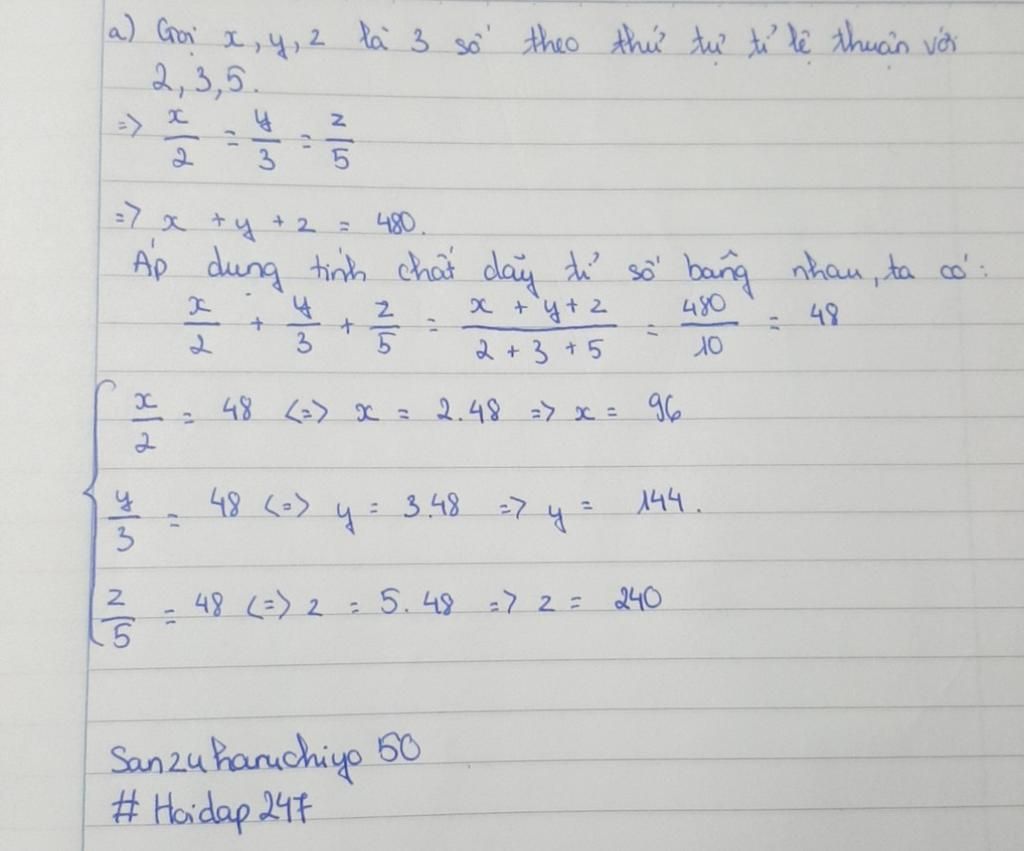 a) Gọi x, y, z là 3 số theo thứ tự tỉ lệ thuận với
2, 3, 5.
=> x/2 = y/3 = z/5
=> x + y + z = 480.
Áp dụng tính chất dãy tỉ số bằng nhau, ta có:
x/2 + y/3 + z/5 = (x + y + z)/(2 + 3 + 5) = 480/10 = 48
x/2 = 48 <=> x = 2.48 => x = 96
y/3 = 48 <=> y = 3.48 => y = 144.
z/5 = 48 <=> z = 5.48 => z = 240
Sanzuharuchiyo 50
# Hoidap247